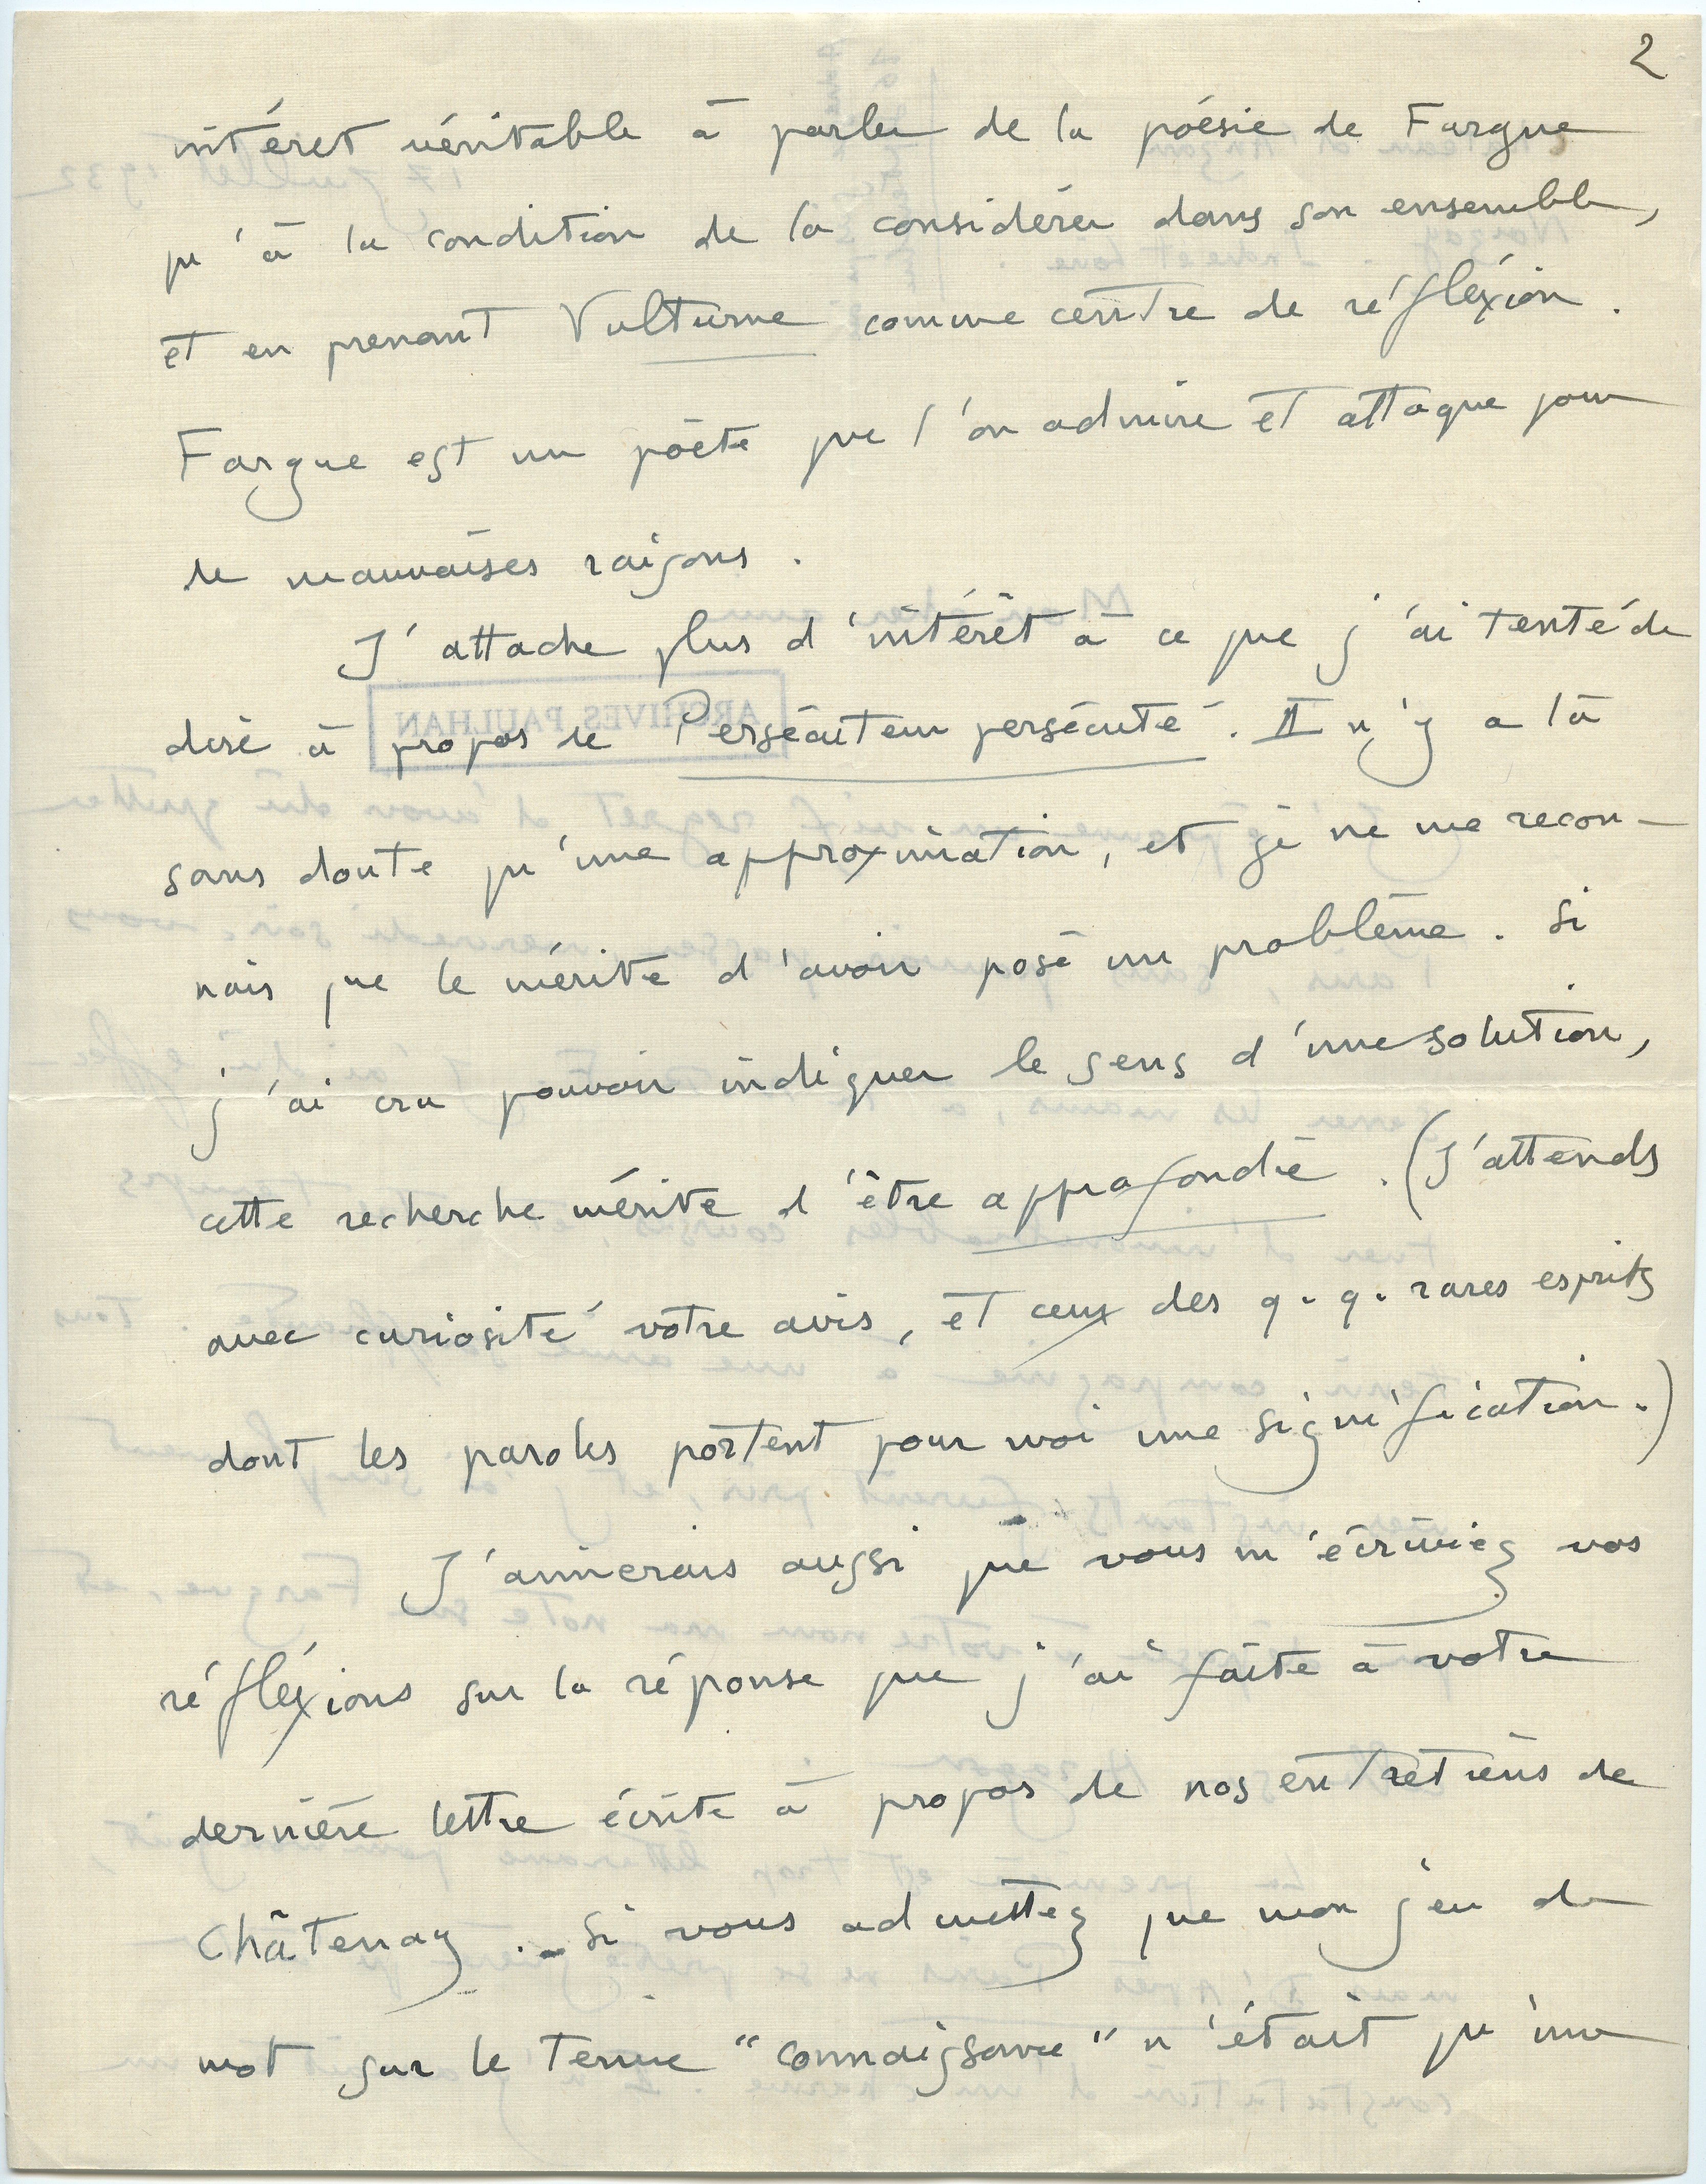 2
intéret véritable à parler de la poésie de Fargue
qu'à la condition de la considérer dans son ensemble,
et en prenant Vulturne comme centre de réfléxion.
Fargue est un poète que l'on admire et attaque pour
de mauvaises raisons.
J'attache plus d'intérêt à ce que j'ai tenté de
dire à propos de Persécuteur persécuté. Il n'y a là
ARCHIVES PAULHAN
sans doute qu'une approximation, et je ne me recon-
nais que le mérite d'avoir posé un problème. Si
j'ai cru pouvoir indiquer le sens d'une solution,
cette recherche mérite d'être approfondie. (J'attends
avec curiosité votre avis, et ceux des q.q. rares esprits
dont les paroles portent pour moi une signification.)
J'aimerais aussi que vous m'écriviez vos
réfléxions sur la réponse que j'ai faite à votre
dernière lettre écrite à propos de nos entretiens de
Châtenay. - Si vous admettez que mon jeu de
mot sur le terme "connaissance" n'était qu'une